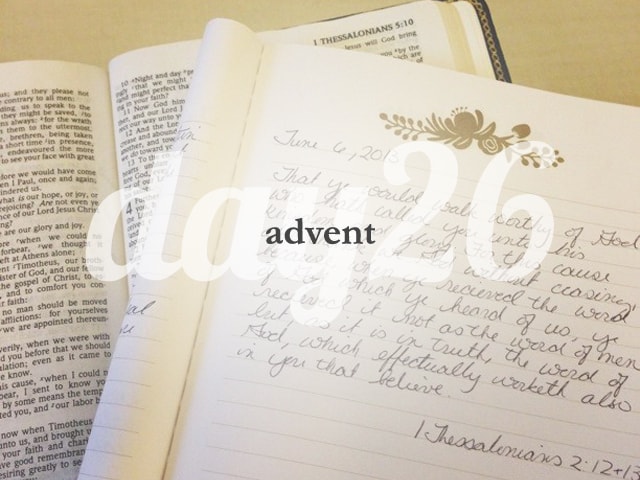 1 THESSALONIANS 5:10
Jesus will God bring
by the
such are
us; and they please not
contrary to all men:
ding us to speak to the
they might be saved, to
ns always: for the wrath
n them to the uttermost.
brethren, being taken
a short time in presence,
endeavoured the more
to see your face with great
efore we would have come
en I Paul, once and again;
indered us.
hat is our hope, or joy, or
rejoicing? Are not even ye
ce of our Lord Jesus Christ
are our glory and joy.
when we could no
forbear, we thought it
at Athens alone;
ent Timotheus, our broth
ister of God, and our
the gospel of Christ, to
and to comfort you con
faith:
no man should be moved
afflictions: for yourselves
we are appointed thereunto
verily, when we were with
ld you before that we should
ulation; even as it came to
e know.
is cause, when I could no
bear, I sent to know
by some means the temp
ted you, and our labor b
now when Timotheus
unto us, and brought
your faith and charit
ve good remembrance
siring greatly to see
10 Night and day
that we might
might perfect that
in your faith?
11 Now God him
and our Lord J
rect our way unto y
12 And the Lord
crease and abound
other, and tow
we do toward
13 To the
day26
advent
June 6, 2015
That ye would walk worthy of God
who hath called you unto his
kingdom and glory. For this cause
thank we God without ceasing,
because, when ye recieved the word
of God which ye heard of us, ye
received it not as the word of men
but as it is in truth, the word of
God, which effectually worketh also
in you that believe.
1 Thessalonians 2:12+13